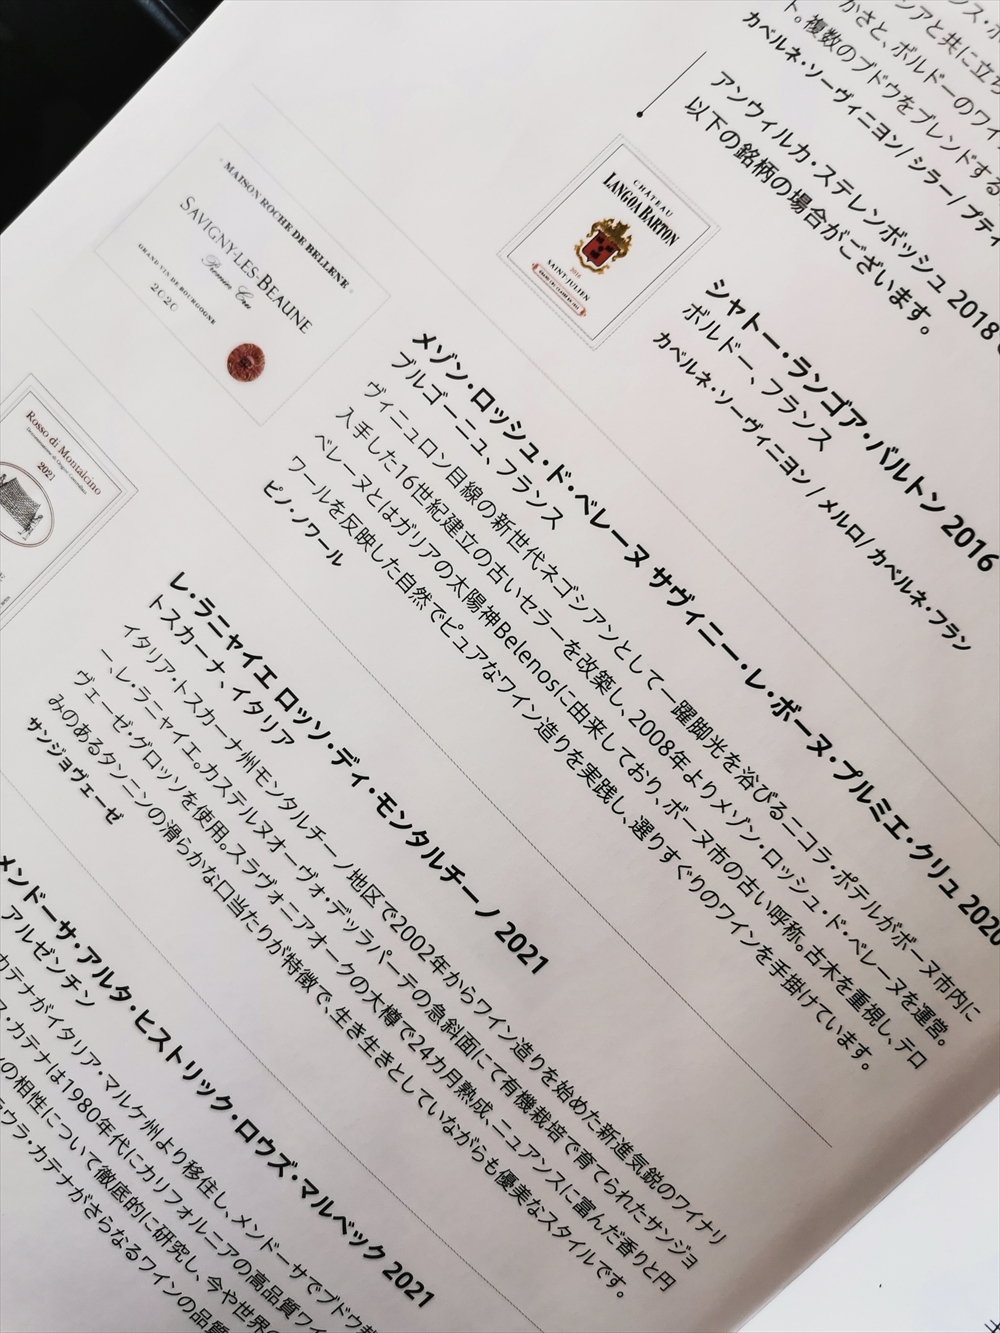 ト。複数のブドウをブレンドする
カベルネ・ソーヴィニヨン/ シラー/ プティ
アンウィルカ・ステレンボッシュ 2018
以下の銘柄の場合がございます。
CHATEAU
LANGOA BARTON
2016
SAINT-JULIEN
シャトー・ランゴア・バルトン 2016
ボルドー、フランス
カベルネ・ソーヴィニヨン/ メルロ/ カベルネ・フラン
MAISON ROCHE DE BELLENE
SAVIGNY-LES-BEAUNE
Premier Cru
GRAND VIN DE BOURGOGNE
2020
メゾン・ロッシュ・ド・ベレーヌ サヴィニー・レ・ボーヌ・プルミエ・クリュ 2020
ブルゴーニュ、フランス
ヴィニュロン目線の新世代ネゴシアンとして一躍脚光を浴びるニコラ・ポテルがボーヌ市内に
入手した16世紀建立の古いセラーを改築し、2008年よりメゾン・ロッシュ・ド・ベレーヌを運営。
ベレーヌとはガリアの太陽神Belenosに由来しており、ボーヌ市の古い呼称。古木を重視し、テロ
ワールを反映した自然でピュアなワイン造りを実践し、選りすぐりのワインを手掛けています。
ピノ・ノワール
Rosso di Montalcino
2021
レ・ラニャイエ ロッソ・ディ・モンタルチーノ 2021
トスカーナ、イタリア
イタリア・トスカーナ州モンタルチーノ地区で2002年からワイン造りを始めた新進気鋭のワイナリ
ー、レ・ラニャイエ。カステルヌオーヴォ・デッラバーテの急斜面にて有機栽培で育てられたサンジョ
ヴェーゼ・グロッソを使用。スラヴォニアオークの大樽で24カ月熟成、ニュアンスに富んだ香りと円
みのあるタンニンの滑らかな口当たりが特徴で、生き生きとしていながらも優美なスタイルです。
サンジョヴェーゼ
メンドーサ・アルタ・ヒストリック・ロウズ・マルベック 2021
アルゼンチン
カテナがイタリア・マルケ州より移住し、メンドーサでブドウ栽
ス・カテナは1980年代にカリフォルニアの高品質ワイ
の相性について徹底的に研究し、今や世界
ラウラ・カテナがさらなるワインの品質